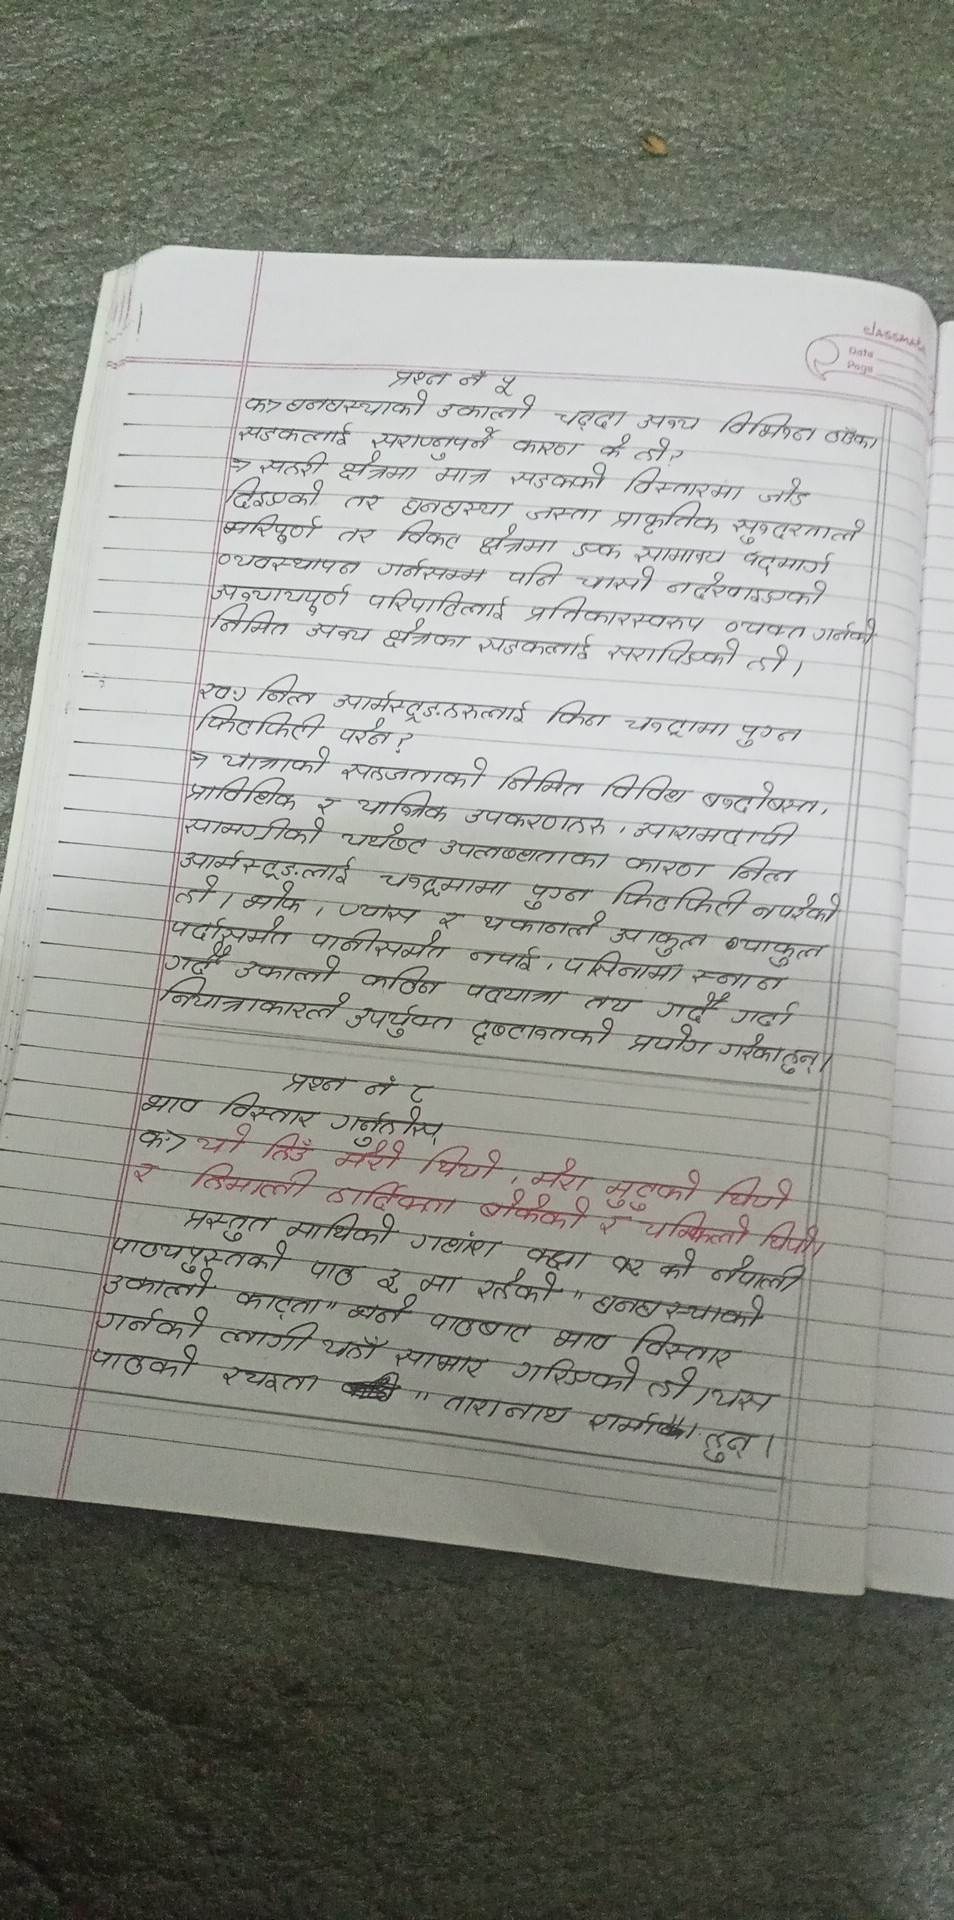 classmate
Date
Page
प्रश्न नं ५
क) घनघस्याको उकालो चढ्दा अन्य विभिन्न ठाउँका
सडकलाई सराप्नुपर्ने कारण के हो?
→ सहरी क्षेत्रमा मात्र सडकको विस्तारमा जोड
दिइएको तर घनघस्या जस्ता प्राकृतिक सुन्दरताले
भरिपूर्ण तर विकट क्षेत्रमा एक सामान्य पद्मार्ग
व्यवस्थापन गर्नसम्म पनि चासो नदेखाइएको
अन्यायपूर्ण परिपाटिलाई प्रतिकारस्वरुप व्यक्त गर्नको
निमित अन्य क्षेत्रका सडकलाई सरापिएको हो।
ख) निल आर्मस्ट्रङहरुलाई किन चन्द्रामा पुग्न
फिटफिटी परेन?
→ यात्राको सहजताको निमित विविध बन्दोबस्त,
प्राविधिक र यान्त्रिक उपकरणहरु, आरामदायी
सामग्रीको यथेष्ट उपलब्धताका कारण निल
आर्मस्ट्रङलाई चन्द्रमामा पुग्न फिटफिटी नपरेको
हो। भोक, प्यास र थकानले आकुल व्याकुल
पर्दासमेत पानीसमेत नपाई, पसिनामा स्नान
गर्दै उकालो कठिन पदयात्रा तय गर्दै गर्दा
नियात्राकारले उपर्युक्त दृष्टान्तको प्रयोग गरेका हुन्।
प्रश्न नं ८
भाव विस्तार गर्नुहोस्
क) यो हिउँ मेरो थियो, मेरा मुटुको थियो
र हिमाली हार्दिकता बोकेको र चम्किलो थियो।
प्रस्तुत माथिको गद्यांश कक्षा १२ को नेपाली
पाठ्यपुस्तको पाठ २ मा रहेको "घनघस्याको
उकालो काट्ता" भन्ने पाठबाट भाव विस्तार
गर्नको लागी यहाँ साभार गरिएको हो। यस
पाठको रचइता "तारानाथ शर्मा हुन्।